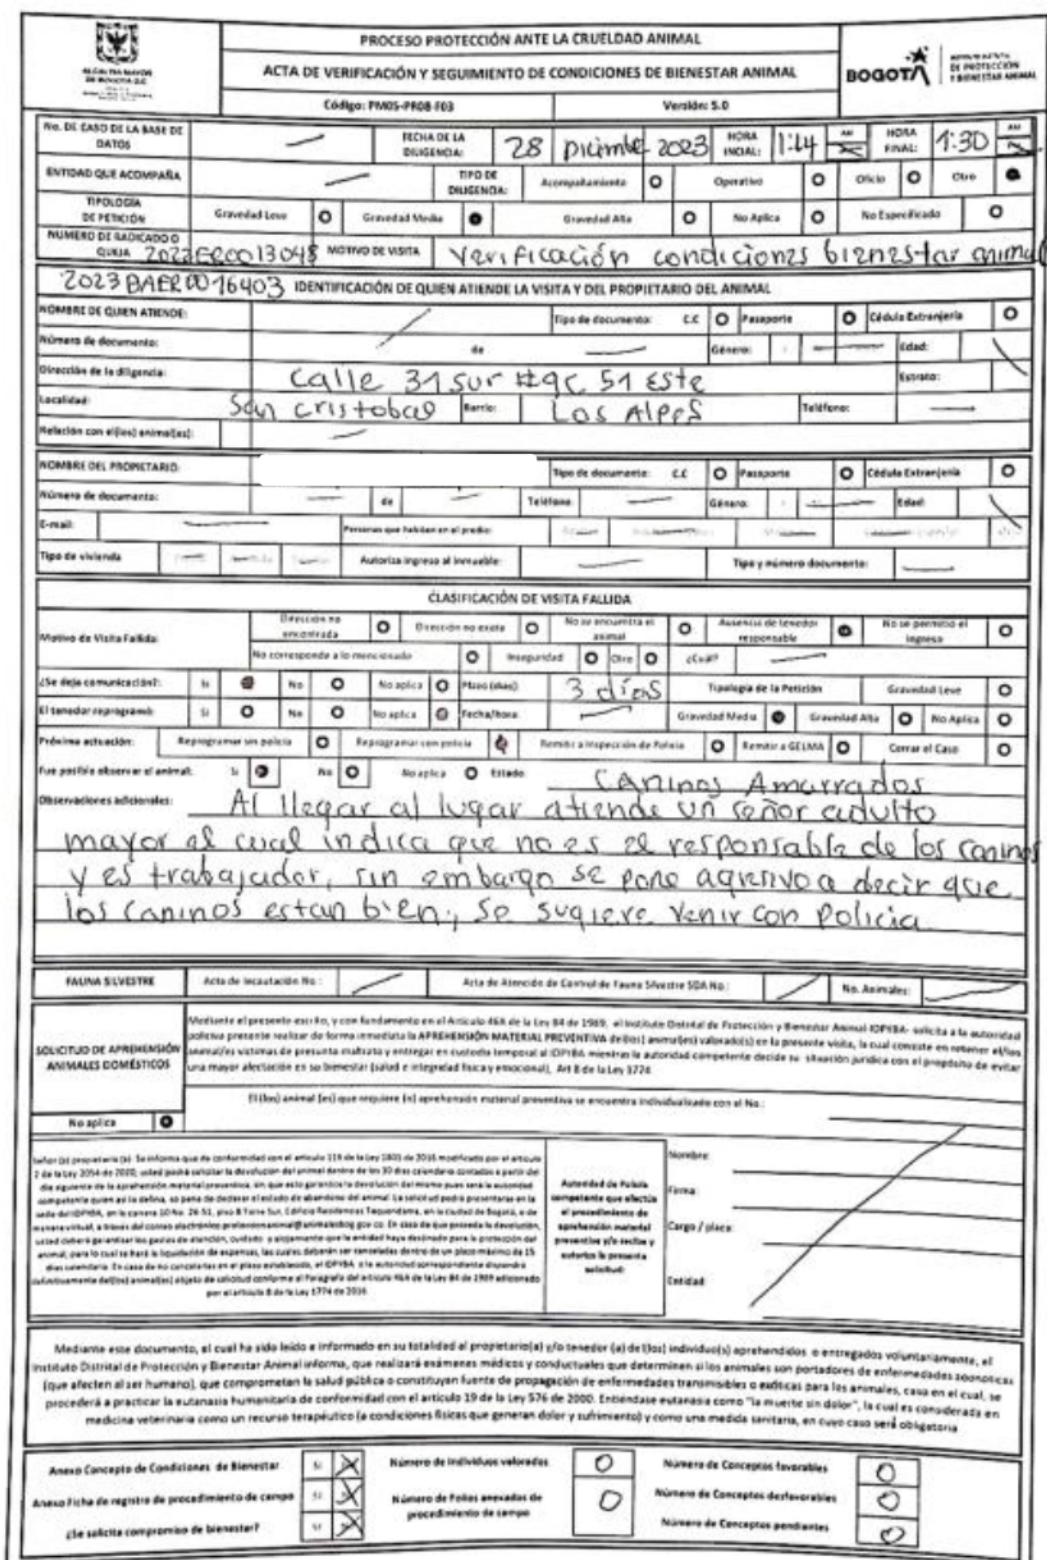 ALCALDÍA MAYOR
DE BOGOTÁ D.C.
PROCESO PROTECCIÓN ANTE LA CRUELDAD ANIMAL
ACTA DE VERIFICACIÓN Y SEGUIMIENTO DE CONDICIONES DE BIENESTAR ANIMAL
Código: PM05-PR08-F03 Versión: 5.0
BOGOTÁ
DE PROTECCIÓN
Y BIENESTAR ANIMAL
No. DE CASO DE LA BASE DE DATOS FECHA DE LA DILIGENCIA: 28 Diciembre 2023 HORA INCIAL: 1:14 AM HORA FINAL: 1:30 AM
ENTIDAD QUE ACOMPAÑA TIPO DE DILIGENCIA: Acompañamiento Operativo Oficio Otro
TIPOLOGÍA DE PETICIÓN Gravedad Leve Gravedad Media Gravedad Alta No Aplica No Especificado
NUMERO DE RADICADO O QUEJA 2023ER0013048 MOTIVO DE VISITA Verificación condiciones bienestar animal
2023BAER0016403 IDENTIFICACIÓN DE QUIEN ATIENDE LA VISITA Y DEL PROPIETARIO DEL ANIMAL
NOMBRE DE QUIEN ATIENDE: Tipo de documento: C.C Pasaporte Cédula Extranjería
Número de documento: de Género: Edad:
Dirección de la diligencia: Calle 31 sur #9c 51 Este Estrato:
Localidad: San Cristobal Barrio: Los Alpes Teléfono:
Relación con el(los) animal(es):
NOMBRE DEL PROPIETARIO: Tipo de documento: C.C Pasaporte Cédula Extranjería
Número de documento: de Teléfono: Género: Edad:
E-mail: Personas que habitan en el predio:
Tipo de vivienda Autoriza ingreso al inmueble: Tipo y número documento:
CLASIFICACIÓN DE VISITA FALLIDA
Motivo de Visita Fallida: Dirección no encontrada Dirección no existe No se encuentra el animal Ausencia de tenedor responsable No se permitió el ingreso
No corresponde a lo mencionado Inseguridad Otro ¿Cuál?
¿Se deja comunicación?: Si No No aplica Plazo (días) 3 días Tipología de la Petición Gravedad Leve
El tenedor reprogramó: Si No No aplica Fecha/hora: Gravedad Media Gravedad Alta No Aplica
Próxima actuación: Reprogramar sin policía Reprogramar con policía Remitir a Inspección de Policía Remitir a GELMA Cerrar el Caso
Fue posible observar el animal: Si No No aplica Estado CANinos Amarrados
Observaciones adicionales: Al llegar al lugar atiende un señor adulto
mayor el cual indica que no es el responsable de los caninos
y es trabajador, sin embargo se pone agresivo a decir que
los caninos estan bien, se sugiere venir con policia
FAUNA SILVESTRE Acta de Incautación No.: Acta de Atención de Control de Fauna Silvestre SDA No.: No. Animales:
SOLICITUD DE APREHENSIÓN ANIMALES DOMÉSTICOS
Mediante el presente escrito, y con fundamento en el Artículo 46A de la Ley 84 de 1989, el Instituto Distrital de Protección y Bienestar Animal-IDPYBA- solicita a la autoridad
policiva presente realizar de forma inmediata la APREHENSIÓN MATERIAL PREVENTIVA de(los) animal(es) valorado(s) en la presente visita, la cual consiste en retener el/los
animal/es víctimas de presunto maltrato y entregar en custodia temporal al IDPYBA mientras la autoridad competente decide su situación jurídica con el propósito de evitar
una mayor afectación en su bienestar (salud e integridad física y emocional), Art 8 de la Ley 1774
El(los) animal (es) que requiere (n) aprehensión material preventiva se encuentra individualizado con el No.:
No aplica
Señor (a) propietario (a): Se informa que de conformidad con el artículo 119 de la Ley 1801 de 2016 modificado por el artículo
2 de la Ley 2054 de 2020, usted podrá solicitar la devolución del animal dentro de los 30 días calendario contados a partir del
día siguiente de la aprehensión material preventiva, sin que esto garantice la devolución del mismo pues será la autoridad
competente quien así lo defina, so pena de declarar el estado de abandono del animal. La solicitud podrá presentarse en la
sede del IDPYBA, en la carrera 10 No. 26-51, piso 8 Torre Sur, Edificio Residencias Tequendama, en la ciudad de Bogotá, o de
manera virtual, a través del correo electrónico proteccionanimal@animalesbog.gov.co. En caso de que proceda la devolución,
usted deberá garantizar los gastos de atención, cuidado y alojamiento que la entidad haya destinado para la protección del
animal, para lo cual se hará la liquidación de expensas, las cuales deberán ser canceladas dentro de un plazo máximo de 15
días calendario. En caso de no cancelarlas en el plazo establecido, el IDPYBA o la autoridad correspondiente dispondrá
definitivamente del(los) animal(es) objeto de solicitud conforme al Parágrafo del artículo 46A de la Ley 84 de 1989 adicionado
por el artículo 8 de la Ley 1774 de 2016
Autoridad de Policía
competente que efectúa
el procedimiento de
aprehensión material
preventiva y/o recibe y
autoriza la presente
solicitud:
Nombre:
Firma:
Cargo / placa:
Entidad:
Mediante este documento, el cual ha sido leído e informado en su totalidad al propietario(a) y/o tenedor (a) de l(los) individuo(s) aprehendidos o entregados voluntariamente, el
Instituto Distrital de Protección y Bienestar Animal informa, que realizará exámenes médicos y conductuales que determinen si los animales son portadores de enfermedades zoonóticas
(que afecten al ser humano), que comprometan la salud pública o constituyan fuente de propagación de enfermedades transmisibles o exóticas para los animales, caso en el cual, se
procederá a practicar la eutanasia humanitaria de conformidad con el artículo 19 de la Ley 576 de 2000. Entiéndase eutanasia como "la muerte sin dolor", la cual es considerada en
medicina veterinaria como un recurso terapéutico (a condiciones físicas que generan dolor y sufrimiento) y como una medida sanitaria, en cuyo caso será obligatoria
Anexo Concepto de Condiciones de Bienestar SI Número de Individuos valorados 0 Número de Conceptos favorables 0
Anexo Ficha de registro de procedimiento de campo SI Número de Folios anexados de procedimiento de campo 0 Número de Conceptos desfavorables 0
¿Se solicita compromiso de bienestar? SI Número de Conceptos pendientes 0